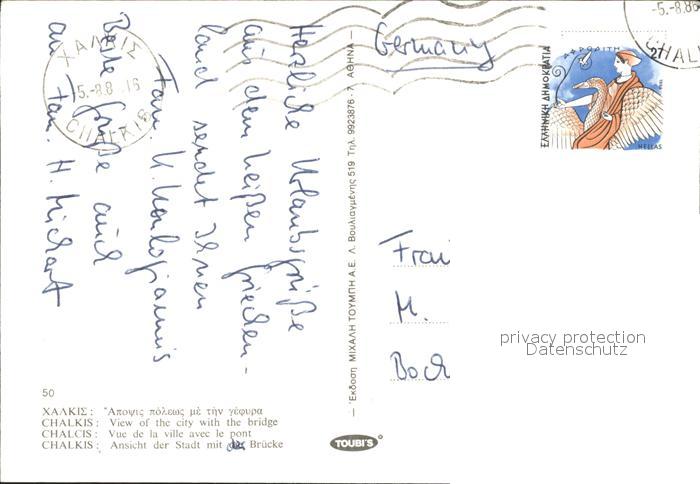 Herzliche Urlaubsgrüße
aus dem heißen Griechen-
land sendet Ihnen
Fam. K. Karlogiannis
Beste Grüße auch
an Fam. H. Michart
ΧΑΛΚΙΣ
5.-8.8 16
CHALKIS
Germany
-5.-8.86
CHAL
ΑΦΡΟΔΙΤΗ
2
ΕΛΛΗΝΙΚΗ ΔΗΜΟΚΡΑΤΙΑ
HELLAS
Frau
M.
Boch
privacy protection
Datenschutz
— Ἔκδοση ΜΙΧΑΛΗ ΤΟΥΜΠΗ Α.Ε. Λ. Βουλιαγμένης 519 Τηλ. 9923876 - 7 ΑΘΗΝΑ —
50
ΧΑΛΚΙΣ: Ἄποψις πόλεως μὲ τὴν γέφυρα
CHALKIS: View of the city with the bridge
CHALCIS: Vue de la ville avec le pont
CHALKIS: Ansicht der Stadt mit der Brücke
TOUBI'S